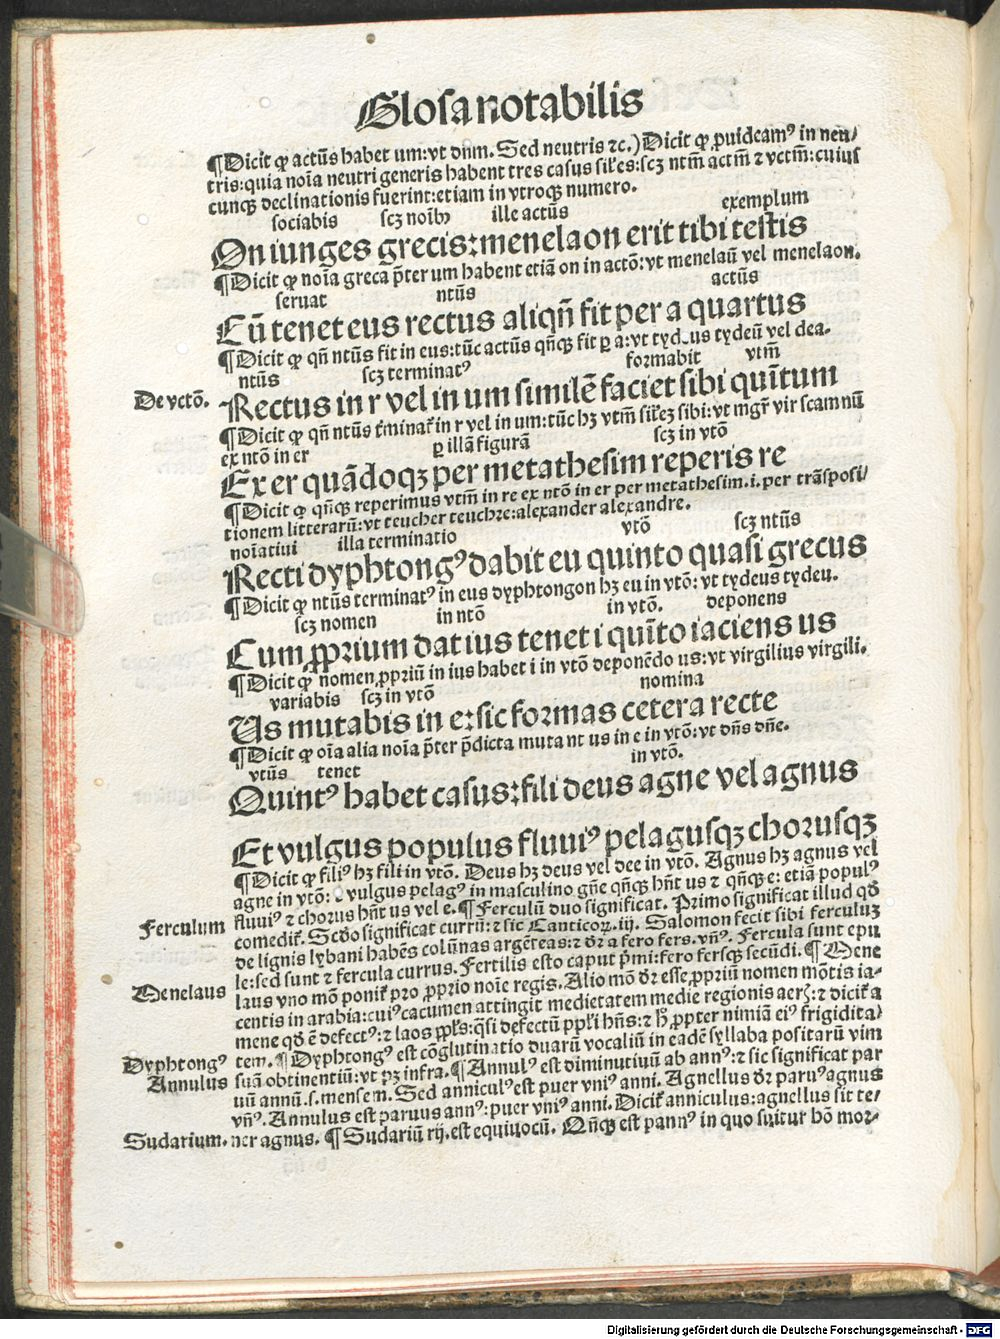 Glosa notabilis
¶Dicit ꝙ actūs habet um: vt dnm̄. Sed neutris ⁊c.) Dicit ꝙ ꝓuideamꝰ in neu/
tris: quia noīa neutri generis habent tres casus sił̄es: scꝫ ntm̄ actm̄ ⁊ vctm̄: cuius
cunqꝫ declinationis fuerint: etiam in vtroqꝫ numero.
sociabis scꝫ noībꝫ ille actūs exemplum
On iunges grecis: menelaon erit tibi testis
¶Dicit ꝙ noīa greca p̄ter um habent etiā on in actō: vt menelaū vel menelaon.
seruat ntūs actūs
Cū tenet eus rectus aliqn̄ fit per a quartus
¶Dicit ꝙ qn̄ ntūs fit in eus: tūc actūs qn̄qꝫ fit ꝑ a: vt tydeus tydeū vel dea.
ntūs scꝫ terminatꝰ formabit vtm̄
De vctō. Rectus in r vel in um similē faciet sibi quītum
¶Dicit ꝙ qn̄ ntūs t̄minat̄ in r vel in um: tūc hꝫ vtm̄ sił̄eꝫ sibi: vt mgr̄ vir scamnū
ex ntō in er ꝑ illā figurā scꝫ in vtō
Ex er quādoqꝫ per metathesim reperis re
¶Dicit ꝙ qn̄qꝫ reperimus vtm̄ in re ex ntō in er per metathesim .i. per trāsposi/
tionem litterarū: vt teucher teuchre: alexander alexandre.
noīatiui illa terminatio vtō scꝫ ntūs
Recti dyphtongꝰ dabit eu quinto quasi grecus
¶Dicit ꝙ ntūs terminatꝰ in eus dyphtongon hꝫ eu in vtō: vt tydeus tydeu.
scꝫ nomen in ntō in vtō. deponens
Cum ꝓprium dat ius tenet i quīto iaciens us
¶Dicit ꝙ nomen ꝓpriū in ius habet i in vtō deponēdo us: vt virgilius virgili.
variabis scꝫ in vtō nomina
Us mutabis in e: sic formas cetera recte
¶Dicit ꝙ oīa alia noīa p̄ter p̄dicta mutant us in e in vtō: vt dn̄s dn̄e.
vtūs tenet in vtō.
Quintꝰ habet casus: fili deus agne vel agnus
Et vulgus populus fluuiꝰ pelagusqꝫ chorusqꝫ
¶Dicit ꝙ filiꝰ hꝫ fili in vtō. Deus hꝫ deus vel dee in vtō. Agnus hꝫ agnus vel
agne in vtō: vulgus pelagꝰ in masculino gn̄e qn̄qꝫ hn̄t us ⁊ qn̄qꝫ e: etiā populꝰ
Ferculum fluuiꝰ ⁊ chorus hn̄t us vel e. ¶Ferculū duo significat. Primo significat illud qd̄
comedit̄. Scd̄o significat currū: ⁊ sic Canticoꝝ .iij. Salomon fecit sibi ferculuꝫ
de lignis lybani habēs colūnas argēteas: ⁊ dr̄ a fero fers. vn̄ꝰ. Fercula sunt epu
le: sed sunt ⁊ fercula currus. Fertilis esto caput p̄mi: fero fersqꝫ secūdi. ¶Mene
Menelaus laus vno mō ponit̄ pro ꝓprio noīe regis. Alio mō dr̄ esse ꝓpriū nomen mōtis ia-
centis in arabia: cuiꝰ cacumen attingit medietatem medie regionis aerꝫ: ⁊ dicit̄ a
mene qd̄ ē defectꝰ: ⁊ laos ppl̄s: q̄si defectū ppl̄i hn̄s: ⁊ h̄ ꝓpter nimiā eiꝰ frigidita/
Dyphtongꝰ tem. ¶Dyphtongꝰ est cōglutinatio duarū vocaliū in eadē syllaba positarū vim
Annulus suā obtinentiū: vt pꝫ infra. ¶Annulꝰ est diminutiuū ab annꝰ: ⁊ sic significat par
uū annū .s. mensem. Sed anniculꝰ est puer vniꝰ anni. Agnellus dr̄ paruꝰ agnus
vn̄ꝰ. Annulus est paruus annꝰ: puer vniꝰ anni. Dicit̄ anniculus: agnellus sit te/
Sudarium. ner agnus. ¶Sudariū rij. est equiuocū. Qn̄qꝫ est pannꝰ in quo suitur hō mor-
Digitalisierung gefördert durch die Deutsche Forschungsgemeinschaft - DFG